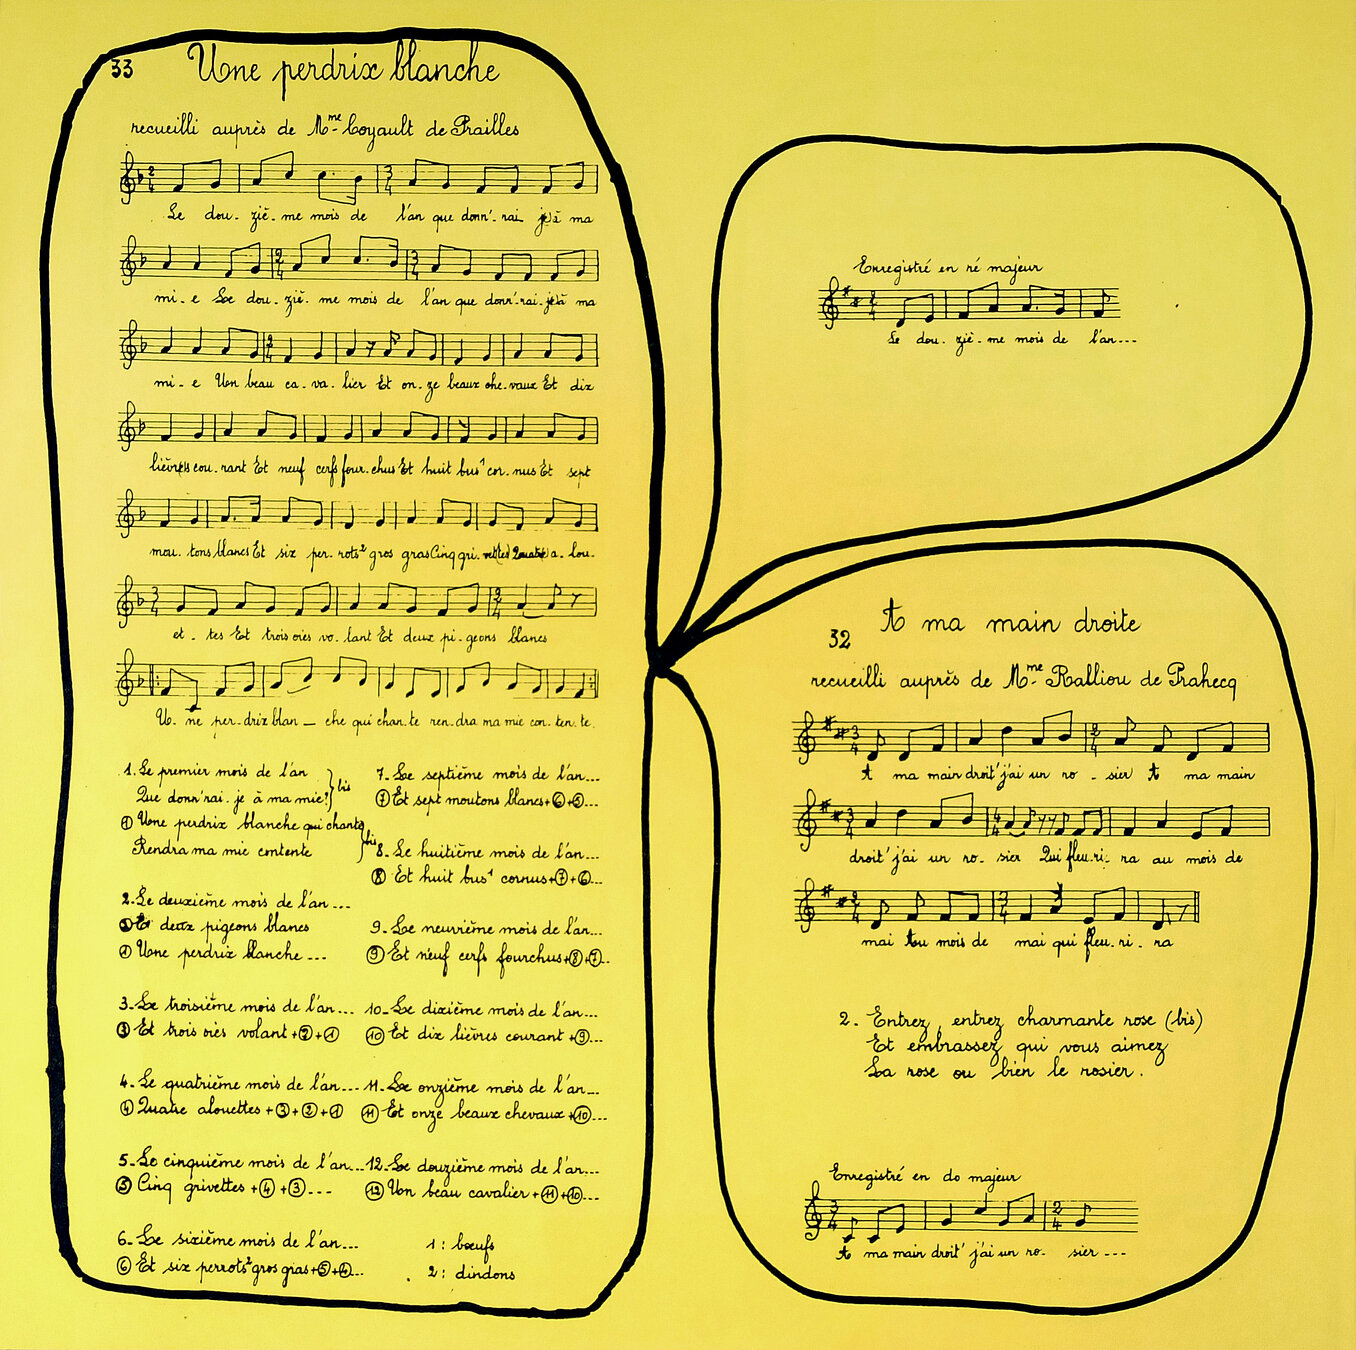 33 Une perdrix blanche
recueilli auprès de Mme Coyault de Prailles
Le dou- ziè- me mois de l'an que donn'- rai je à ma
mi- e Le dou- ziè- me mois de l'an que donn'- rai- je à ma
mi- e Un beau ca- va- lier Et on- ze beaux che- vaux Et dix
lièvres cou- rant Et neuf cerfs four- chus Et huit bus¹ cor- nus Et sept
mou- tons blancs Et six per- rots² gros gras Cinq gri- vettes Quatre a- lou-
et- tes Et trois oies vo- lant Et deux pi- geons blancs
U- ne per- drix blan — che qui chan- te ren- dra ma mie con- ten- te
1. Le premier mois de l'an
Que donn'rai- je à ma mie? } bis
① Une perdrix blanche qui chante
Rendra ma mie contente } bis
2. Le deuxième mois de l'an ...
② Et deux pigeons blancs
① Une perdrix blanche ...
3. Le troisième mois de l'an ...
③ Et trois oies volant + ② + ①
4. Le quatrième mois de l'an ...
④ Quatre alouettes + ③ + ② + ①
5. Le cinquième mois de l'an ...
⑤ Cinq grivettes + ④ + ③ ...
6. Le sixième mois de l'an ...
⑥ Et six perrots² gros gras + ⑤ + ④ ...
7. Le septième mois de l'an ...
⑦ Et sept moutons blancs + ⑥ + ⑤ ...
8. Le huitième mois de l'an ...
⑧ Et huit bus¹ cornus + ⑦ + ⑥ ...
9. Le neuvième mois de l'an ...
⑨ Et neuf cerfs fourchus + ⑧ + ⑦ ...
10. Le dixième mois de l'an ...
⑩ Et dix lièvres courant + ⑨ ...
11. Le onzième mois de l'an ...
⑪ Et onze beaux chevaux + ⑩ ...
12. Le douzième mois de l'an ...
⑫ Un beau cavalier + ⑪ + ⑩ ...
1 : bœufs
2 : dindons
Enregistré en ré majeur
Le dou- ziè- me mois de l'an ...
32 A ma main droite
recueilli auprès de Mme Ralliou de Prahecq
A ma main droit' j'ai un ro- sier A ma main
droit' j'ai un ro- sier Qui fleu- ri- ra au mois de
mai Au mois de mai qui fleu- ri- ra
2. Entrez, entrez charmante rose (bis)
Et embrassez qui vous aimez
La rose ou bien le rosier.
Enregistré en do majeur
A ma main droit' j'ai un ro- sier ...